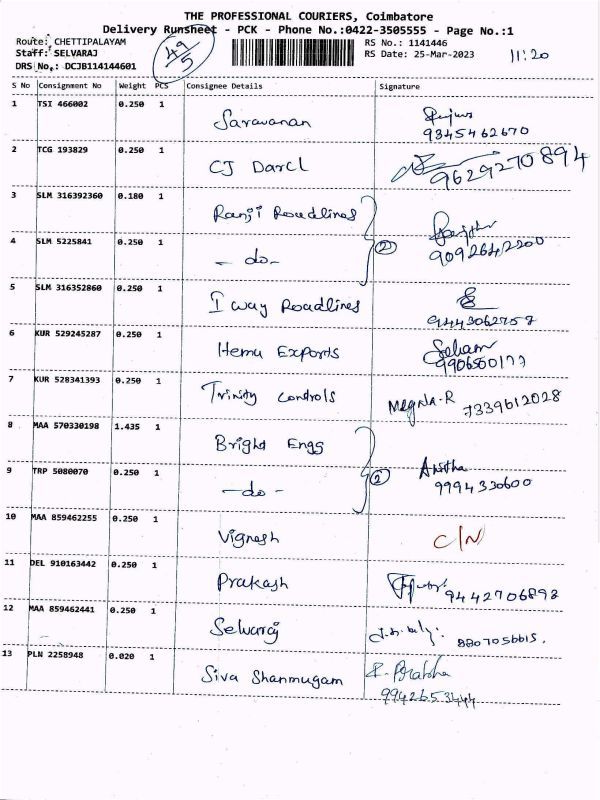 THE PROFESSIONAL COURIERS, Coimbatore
Delivery Runsheet - PCK - Phone No.:0422-3505555 - Page No.:1
Route: CHETTIPALAYAM
Staff: SELVARAJ
DRS No.: DCJB114144601
49/5
RS No.: 1141446
RS Date: 25-Mar-2023
11:20
S No Consignment No Weight PCS Consignee Details Signature
1 TSI 466002 0.250 1 Saravanan
9345462670
2 TCG 193829 0.250 1 CJ Darcl
9629270894
3 SLM 316392360 0.180 1 Ranji Roadlines
4 SLM 5225841 0.250 1 - do - 2
9092642200
5 SLM 316352860 0.250 1 I way Roadlines
9443062757
6 KUR 529245287 0.250 1 Hemu Exports
7 KUR 528341393 0.250 1 Trinity Controls
7339612028
8 MAA 570330198 1.435 1 Bright Engg
9 TRP 5080070 0.250 1 - do - 2 Anitha
9994330600
10 MAA 859462255 0.250 1 Vignesh C/N
11 DEL 910163442 0.250 1 Prakash
9442706892
12 MAA 859462441 0.250 1 Selvaraj
13 PLN 2258948 0.020 1 Siva Shanmugam
9942653444